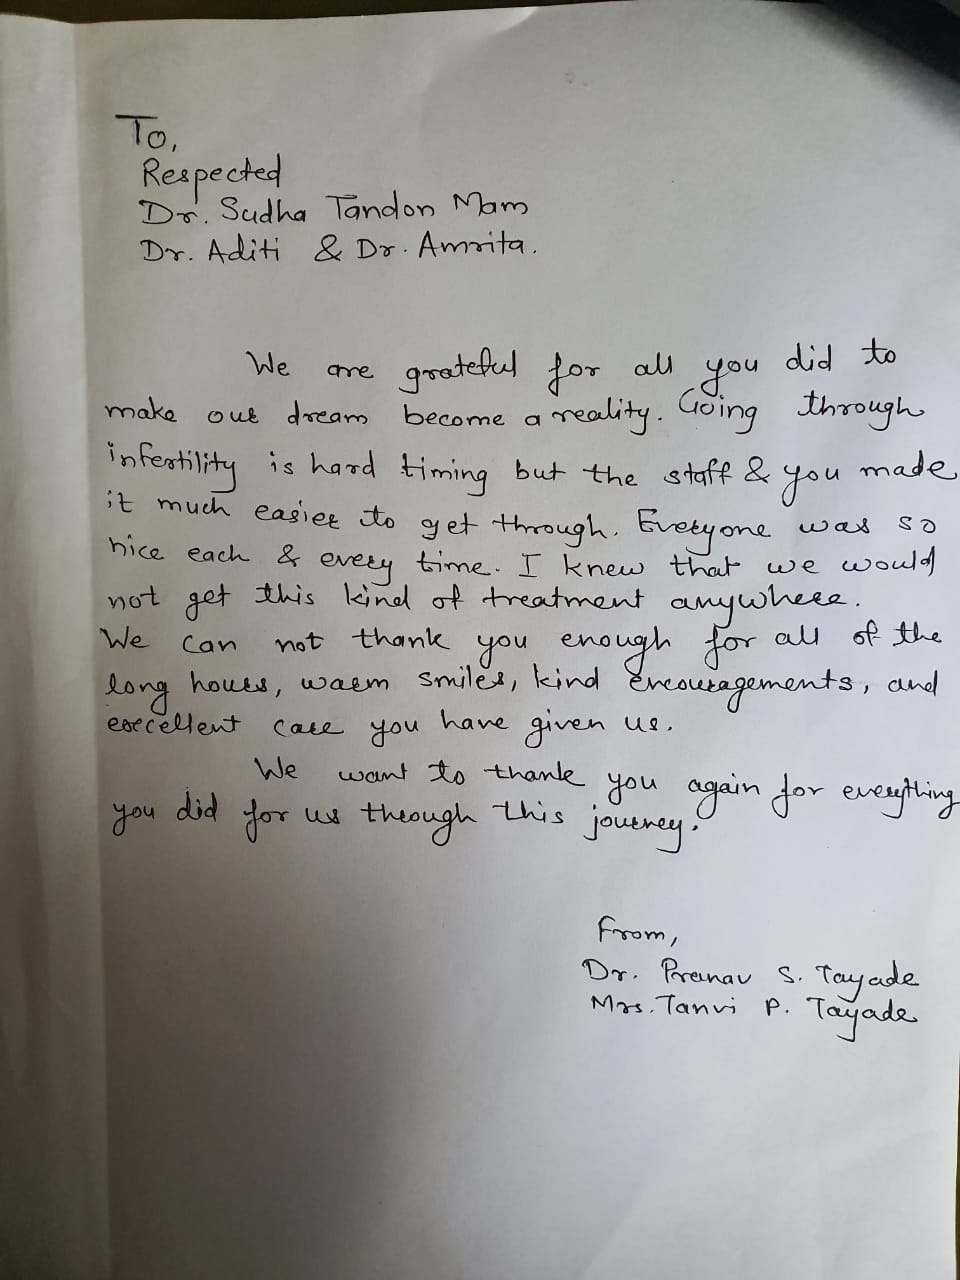 To,
Respected
Dr. Sudha Tandon Mam
Dr. Aditi & Dr. Amrita.
We are grateful for all you did to
make our dream become a reality. Going through
infertility is hard timing but the staff & you made
it much easier to get through. Everyone was so
nice each & every time. I knew that we would
not get this kind of treatment anywhere.
We can not thank you enough for all of the
long hours, warm smiles, kind encouragements, and
excellent care you have given us.
We want to thank you again for everything
you did for us through this journey.
From,
Dr. Pranav S. Tayade
Mrs. Tanvi P. Tayade